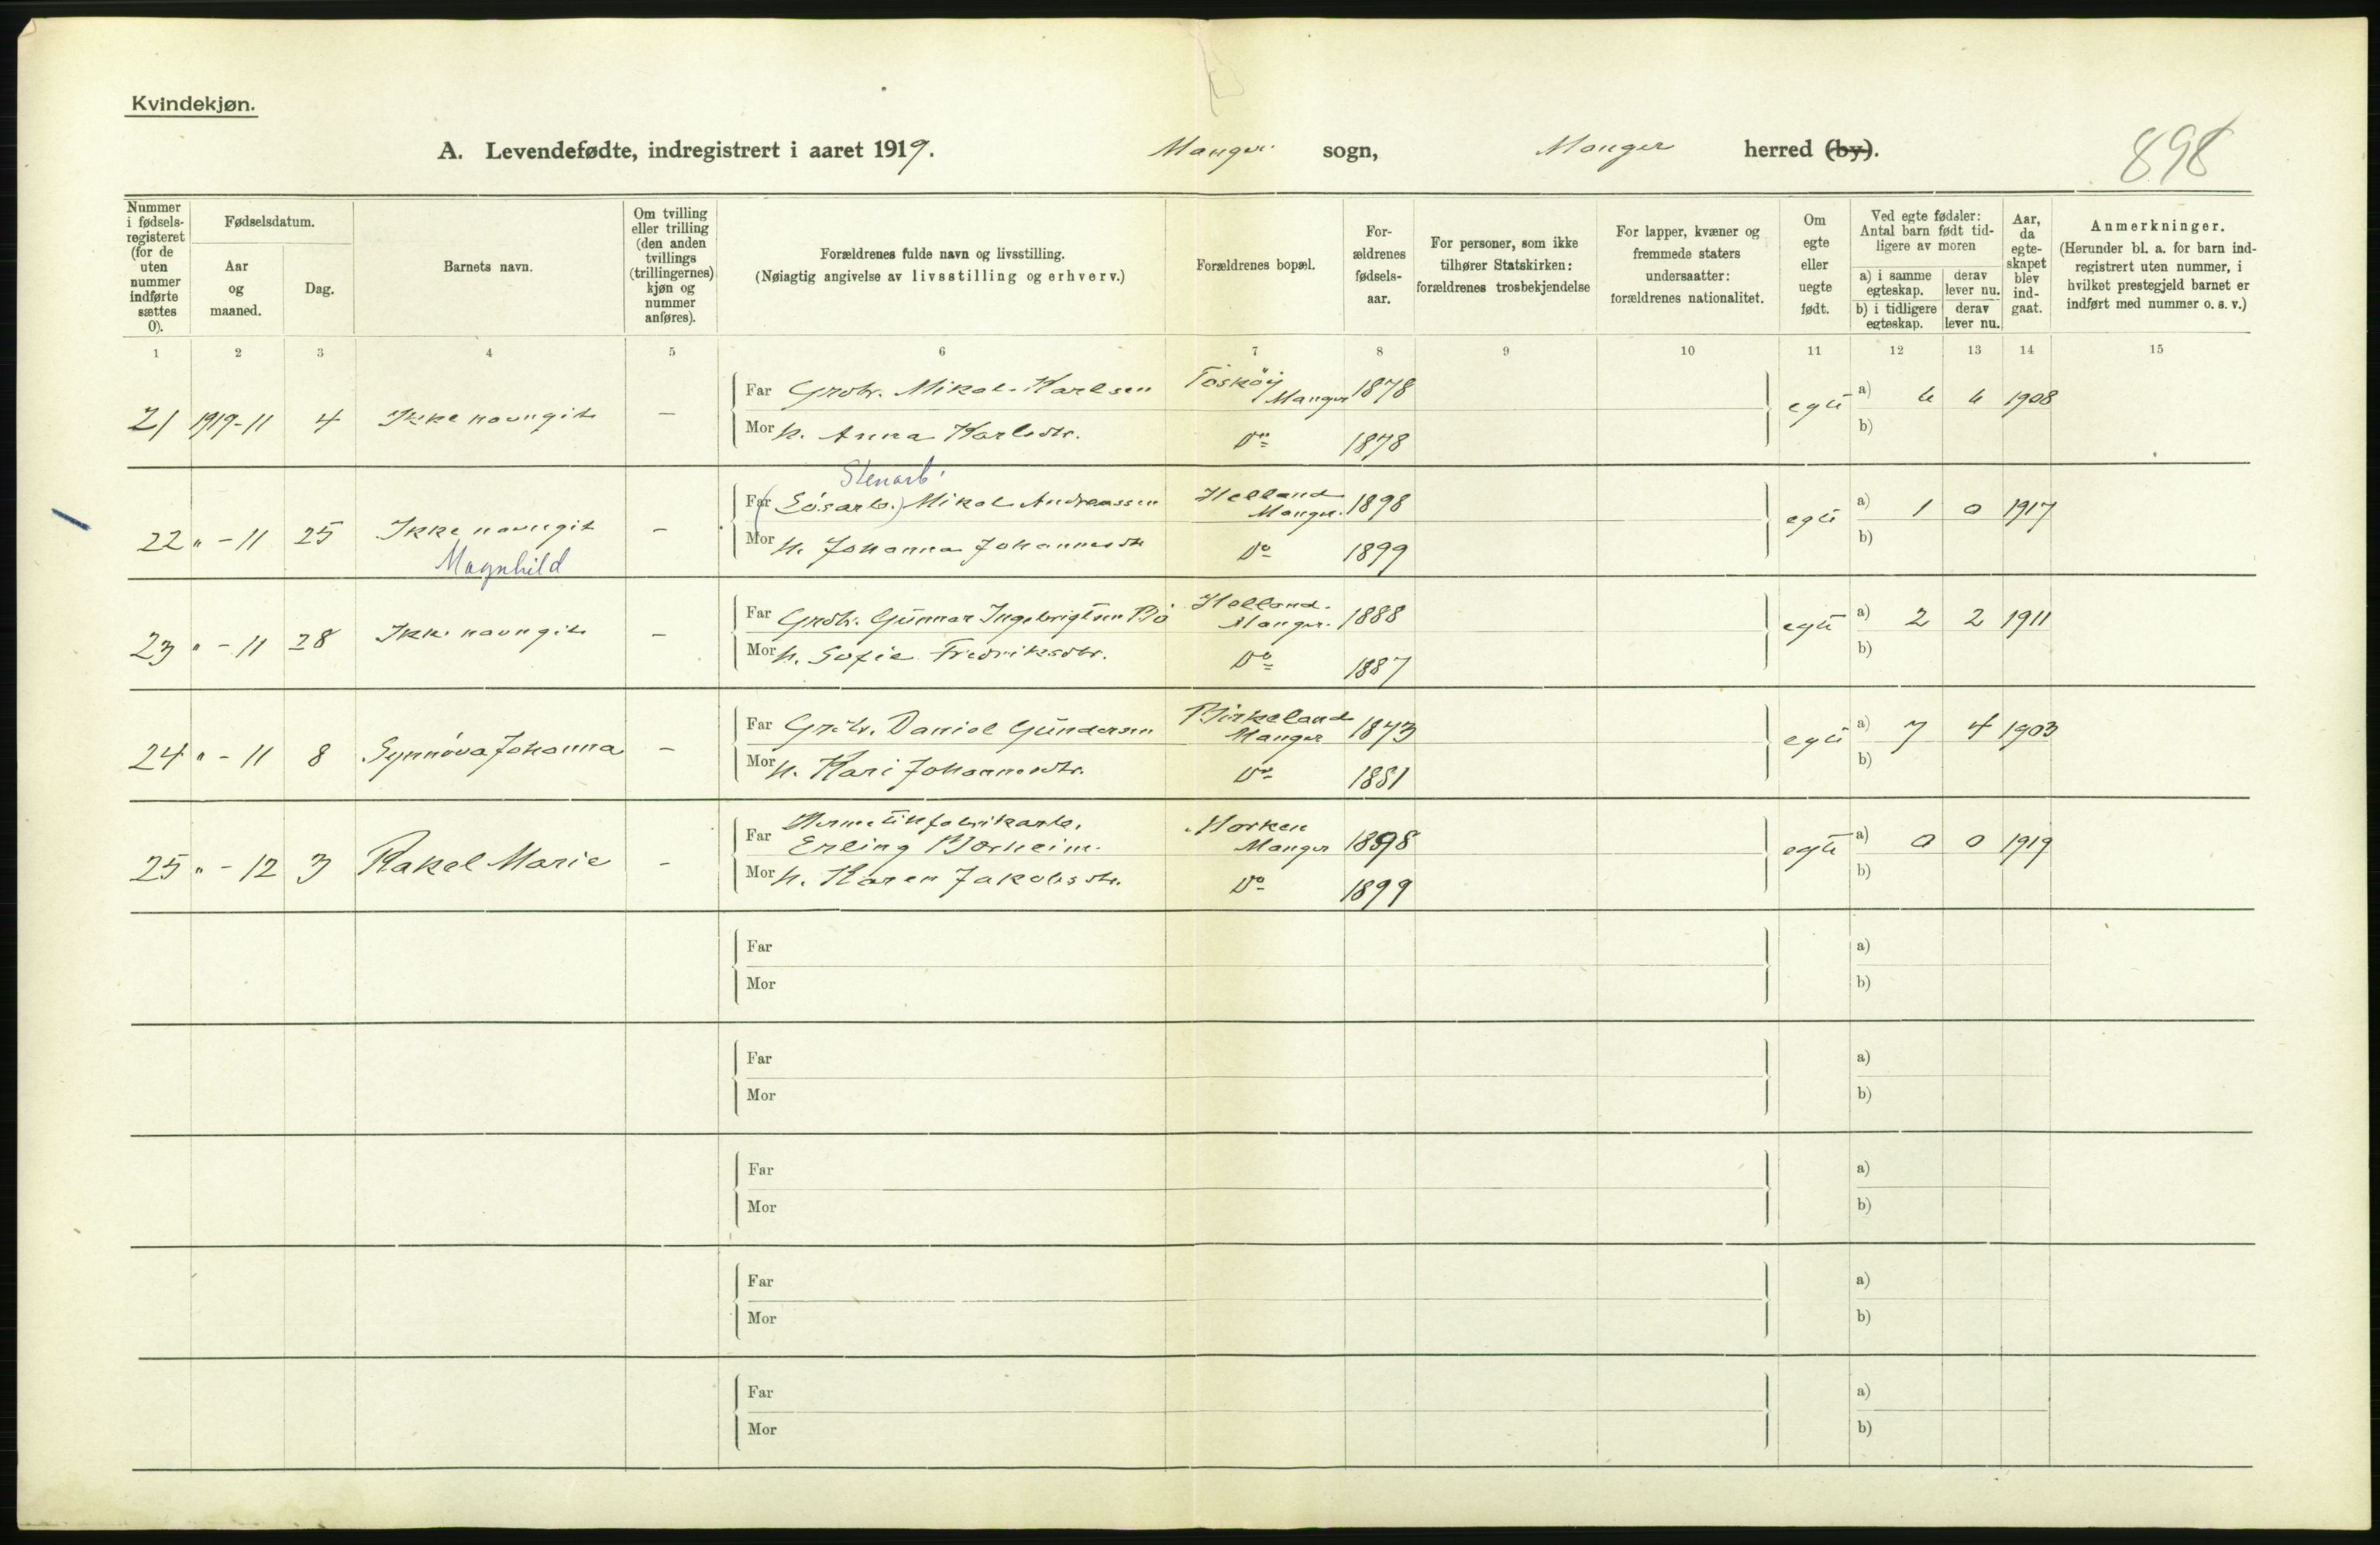 Kvindekjøn.
A. Levendefødte, indregistrert i aaret 1919. Manger sogn, Manger herred (by).
898
Nummer i fødsels-registeret (for de uten nummer indførte sættes 0).
Fødselsdatum.
Aar og maaned.
Dag.
Barnets navn.
Om tvilling eller trilling (den anden tvillings (trillingernes) kjøn og nummer anføres).
Forældrenes fulde navn og livsstilling.
(Nøiagtig angivelse av livsstilling og erhverv.)
Forældrenes bopæl.
For-ældrenes fødsels-aar.
For personer, som ikke tilhører Statskirken: forældrenes trosbekjendelse
For lapper, kvæner og fremmede staters undersaatter: forældrenes nationalitet.
Om egte eller uegte født.
Ved egte fødsler: Antal barn født tid-ligere av moren
a) i samme egteskap.
derav lever nu.
b) i tidligere egteskap.
derav lever nu.
Aar, da egte-skapet blev ind-gaat.
Anmerkninger.
(Herunder bl. a. for barn ind-registrert uten nummer, i hvilket prestegjeld barnet er indført med nummer o. s. v.)
1 2 3 4 5 6 7 8 9 10 11 12 13 14 15
21 1919-11 4 Ikke navngit — Far Grdbr. Mikal Karlsen Toskøy Manger 1878 egte a) 6 6 1908
Mor h. Anna Karlsdtr. Do 1878 b)
Stenarb.
22 " - 11 25 Ikke navngit – Far (Løsarb.) Mikal Andreassen Helland Manger 1898 egte a) 1 0 1917
Magnhild
Mor h. Johanna Johannesdtr Do 1899 b)
23 " - 11 28 Ikke navngit – Far Grdbr. Gunnar Ingebrigtsen Bö Helland Manger 1888 egte a) 2 2 1911
Mor h. Sofie Fredriksdtr. Do 1887 b)
24 " - 11 8 Synnöva Johanna – Far Grdbr. Daniel Gundersen Birkeland Manger 1873 egte a) 7 4 1903
Mor h. Kari Johannesdtr. Do 1881 b)
25 " - 12 3 Rakel Marie – Far Hermetikfabrikarb. Erling Borheim Manger 1898 egte a) 0 0 1919
Mor h. Karen Jakobsdtr. Do 1899 b)
Far a)
Mor b)
Far a)
Mor b)
Far a)
Mor b)
Far a)
Mor b)
Far a)
Mor b)